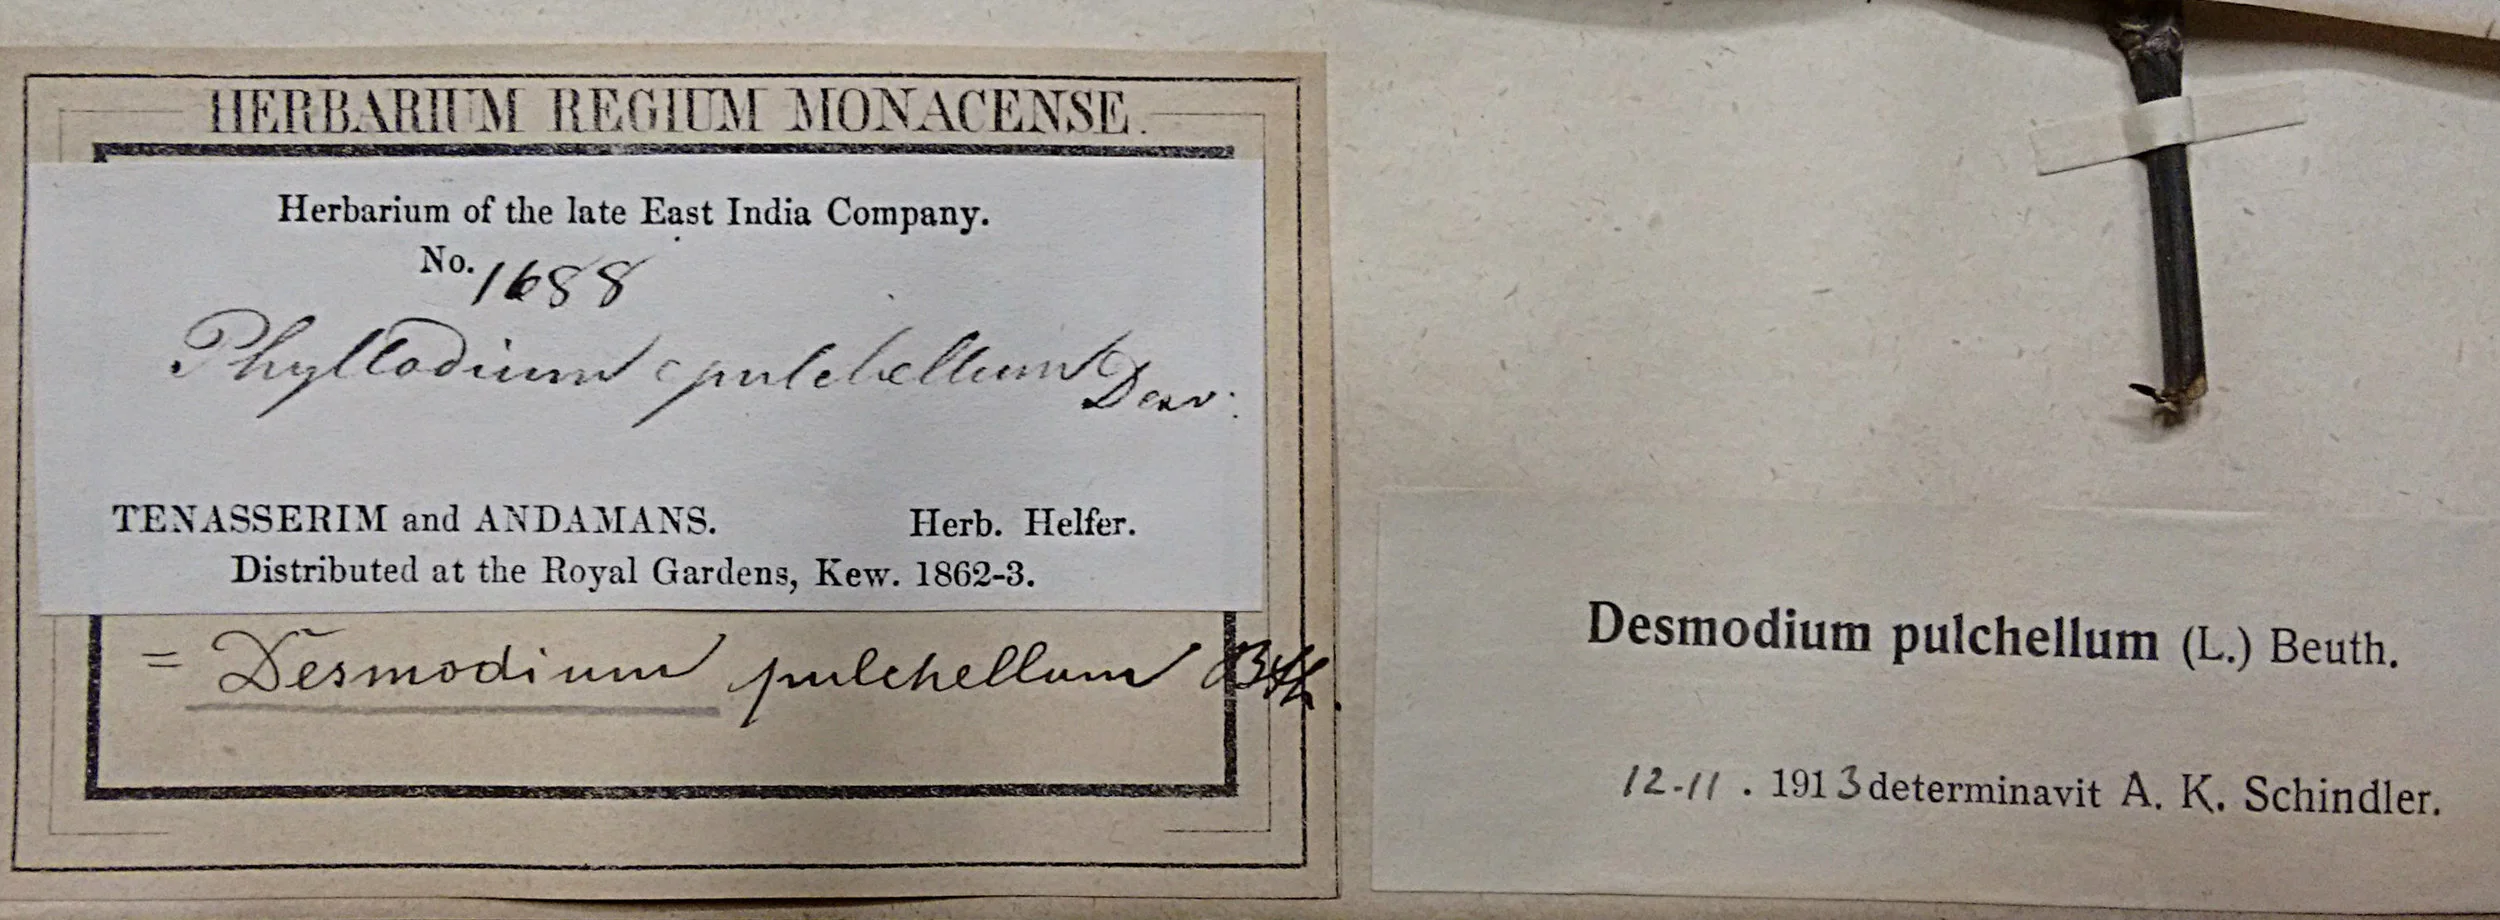 HERBARIUM REGIUM MONACENSE.
Herbarium of the late East India Company.
No. 1688
Phyllodium pulchellum Desv.
TENASSERIM and ANDAMANS. Herb. Helfer.
Distributed at the Royal Gardens, Kew. 1862-3.
= Desmodium pulchellum Bth.
Desmodium pulchellum (L.) Beuth.
12-11 . 1913 determinavit A. K. Schindler.